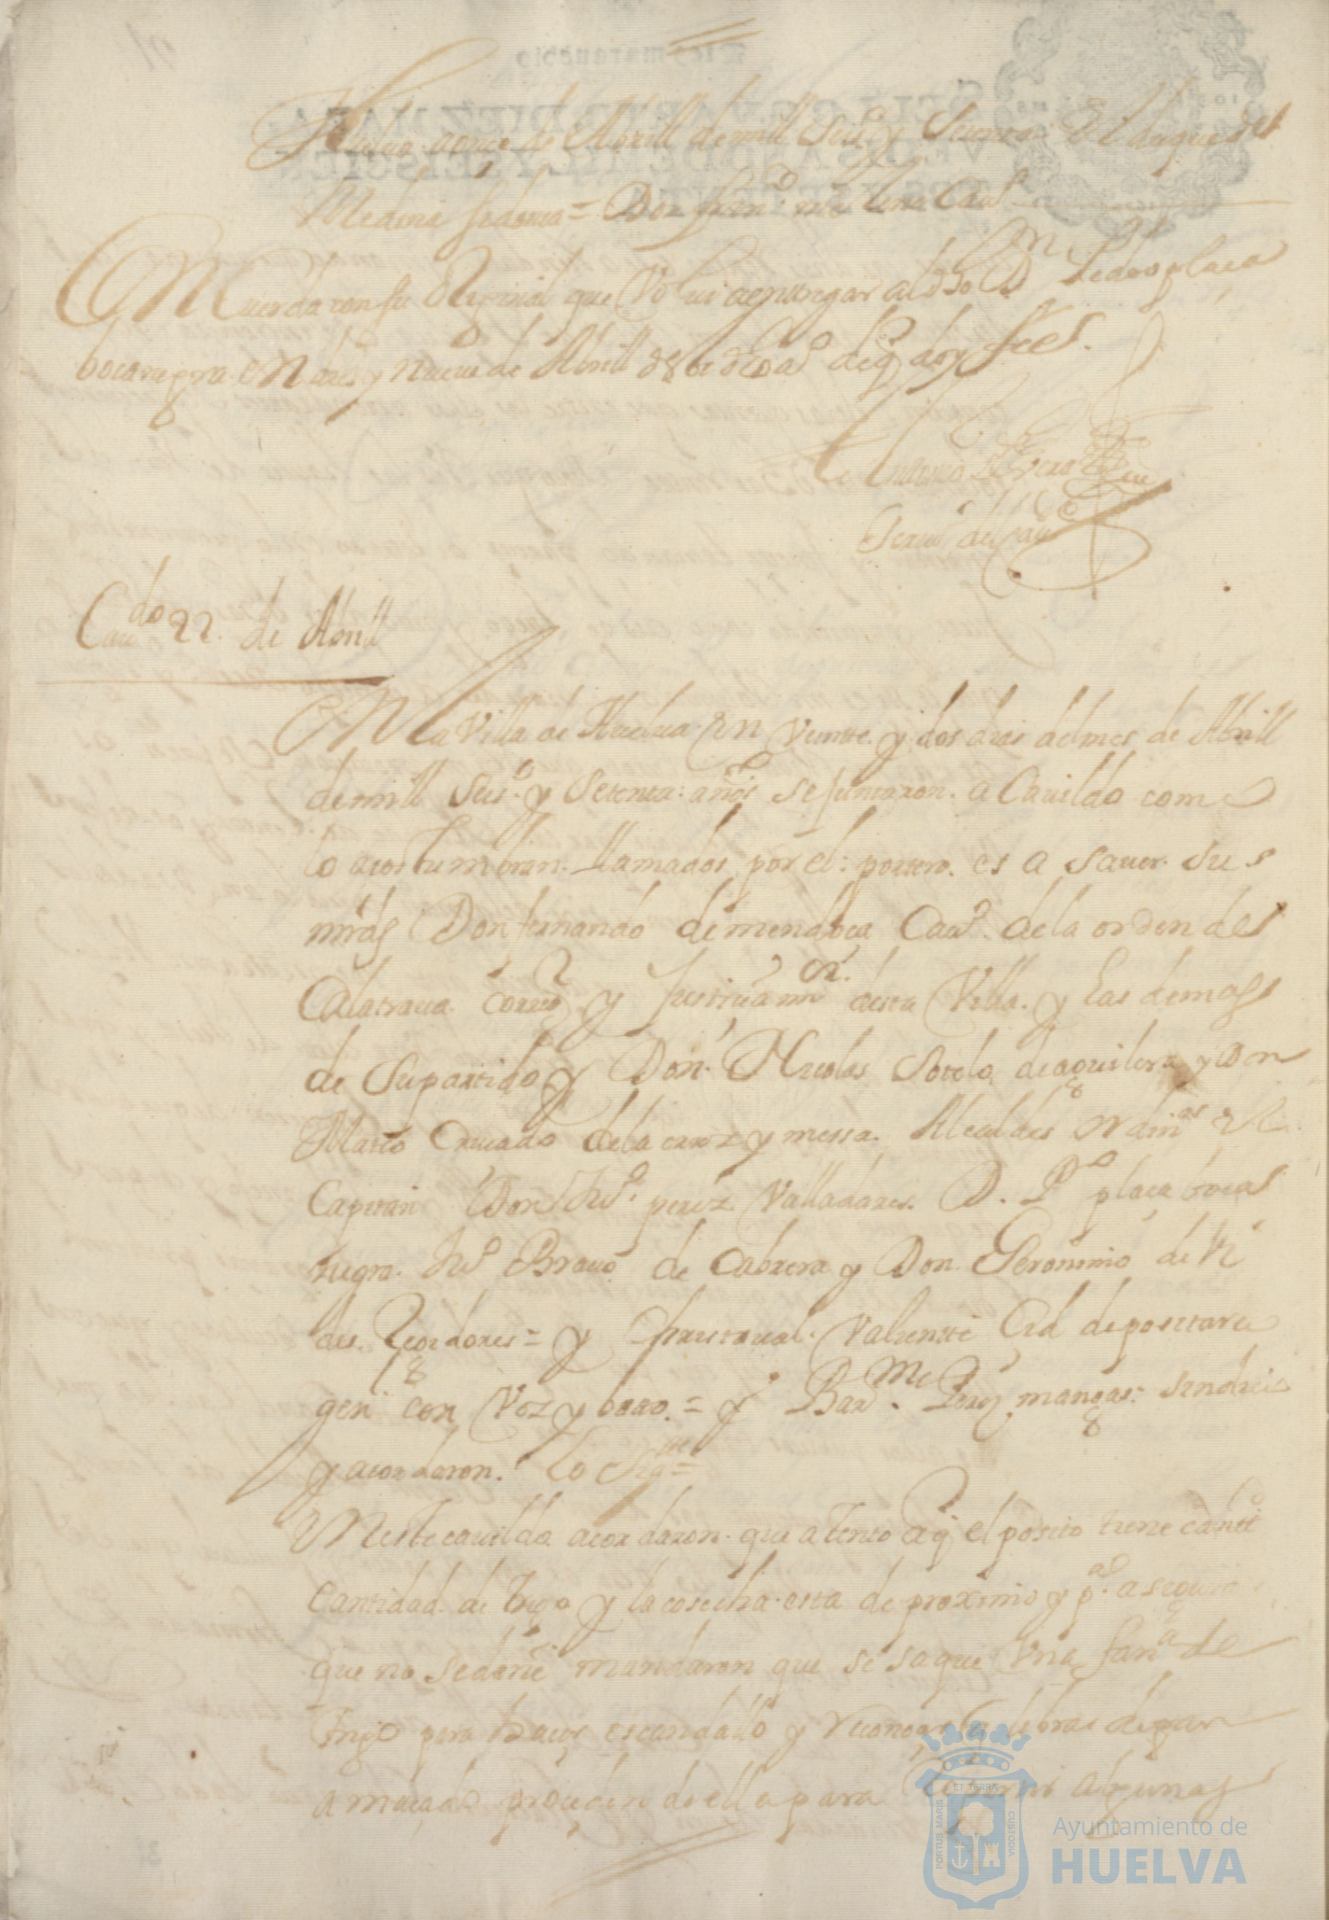 Huelva a onçe de Abrill de mill seisº y setenta = El duque de
Medina sidonia = Don franº mle
Cuerda con su Original que Volui a entregar al dho D. Pedro plaça
bocanegra en dies y nueve de Abrill de de q doy fee
Antonio de Vera
Scriuº del cauº
Cauᵈᵒ 22 de Abrill
En la Villa de Huelua en Veinte y dos dias del mes de Abrill
de mill seisº y setenta años se juntaron a Cauildo como
lo acostumbran llamados por el portero es a sauer sus
mrds Don fernando de mendoça Cauº de la orden de
Calatraua correº y Justiçia mʳ desta Villa y las demas
de su partido y Don Nicolas Sotelo de aguilera y Don
Matto Cruçado de la cruz y messa Alcaldes ordinᵒˢ el
Capitan Don Juº perez Valladares D. Pº plaça bocas
negra Juº Brauo de Cabrera y Don Geronimo de
Regidores = y Christoual Valiente Cid depositario
gen con Voz y boto = y Barᵐᵉ Perez mangas sindico
y acordaron lo sigᵗᵉ =
En este cauildo acordaron que atento a q el posito tiene
cantidad de trigo y la cosecha esta de proximo y pª
que no se dañe mandaron que se saque Vna fanª de
trigo para haçer escandallo y reconoçer las libras de pan
amaçado proçeden de ella para algunas
Ayuntamiento de
HUELVA